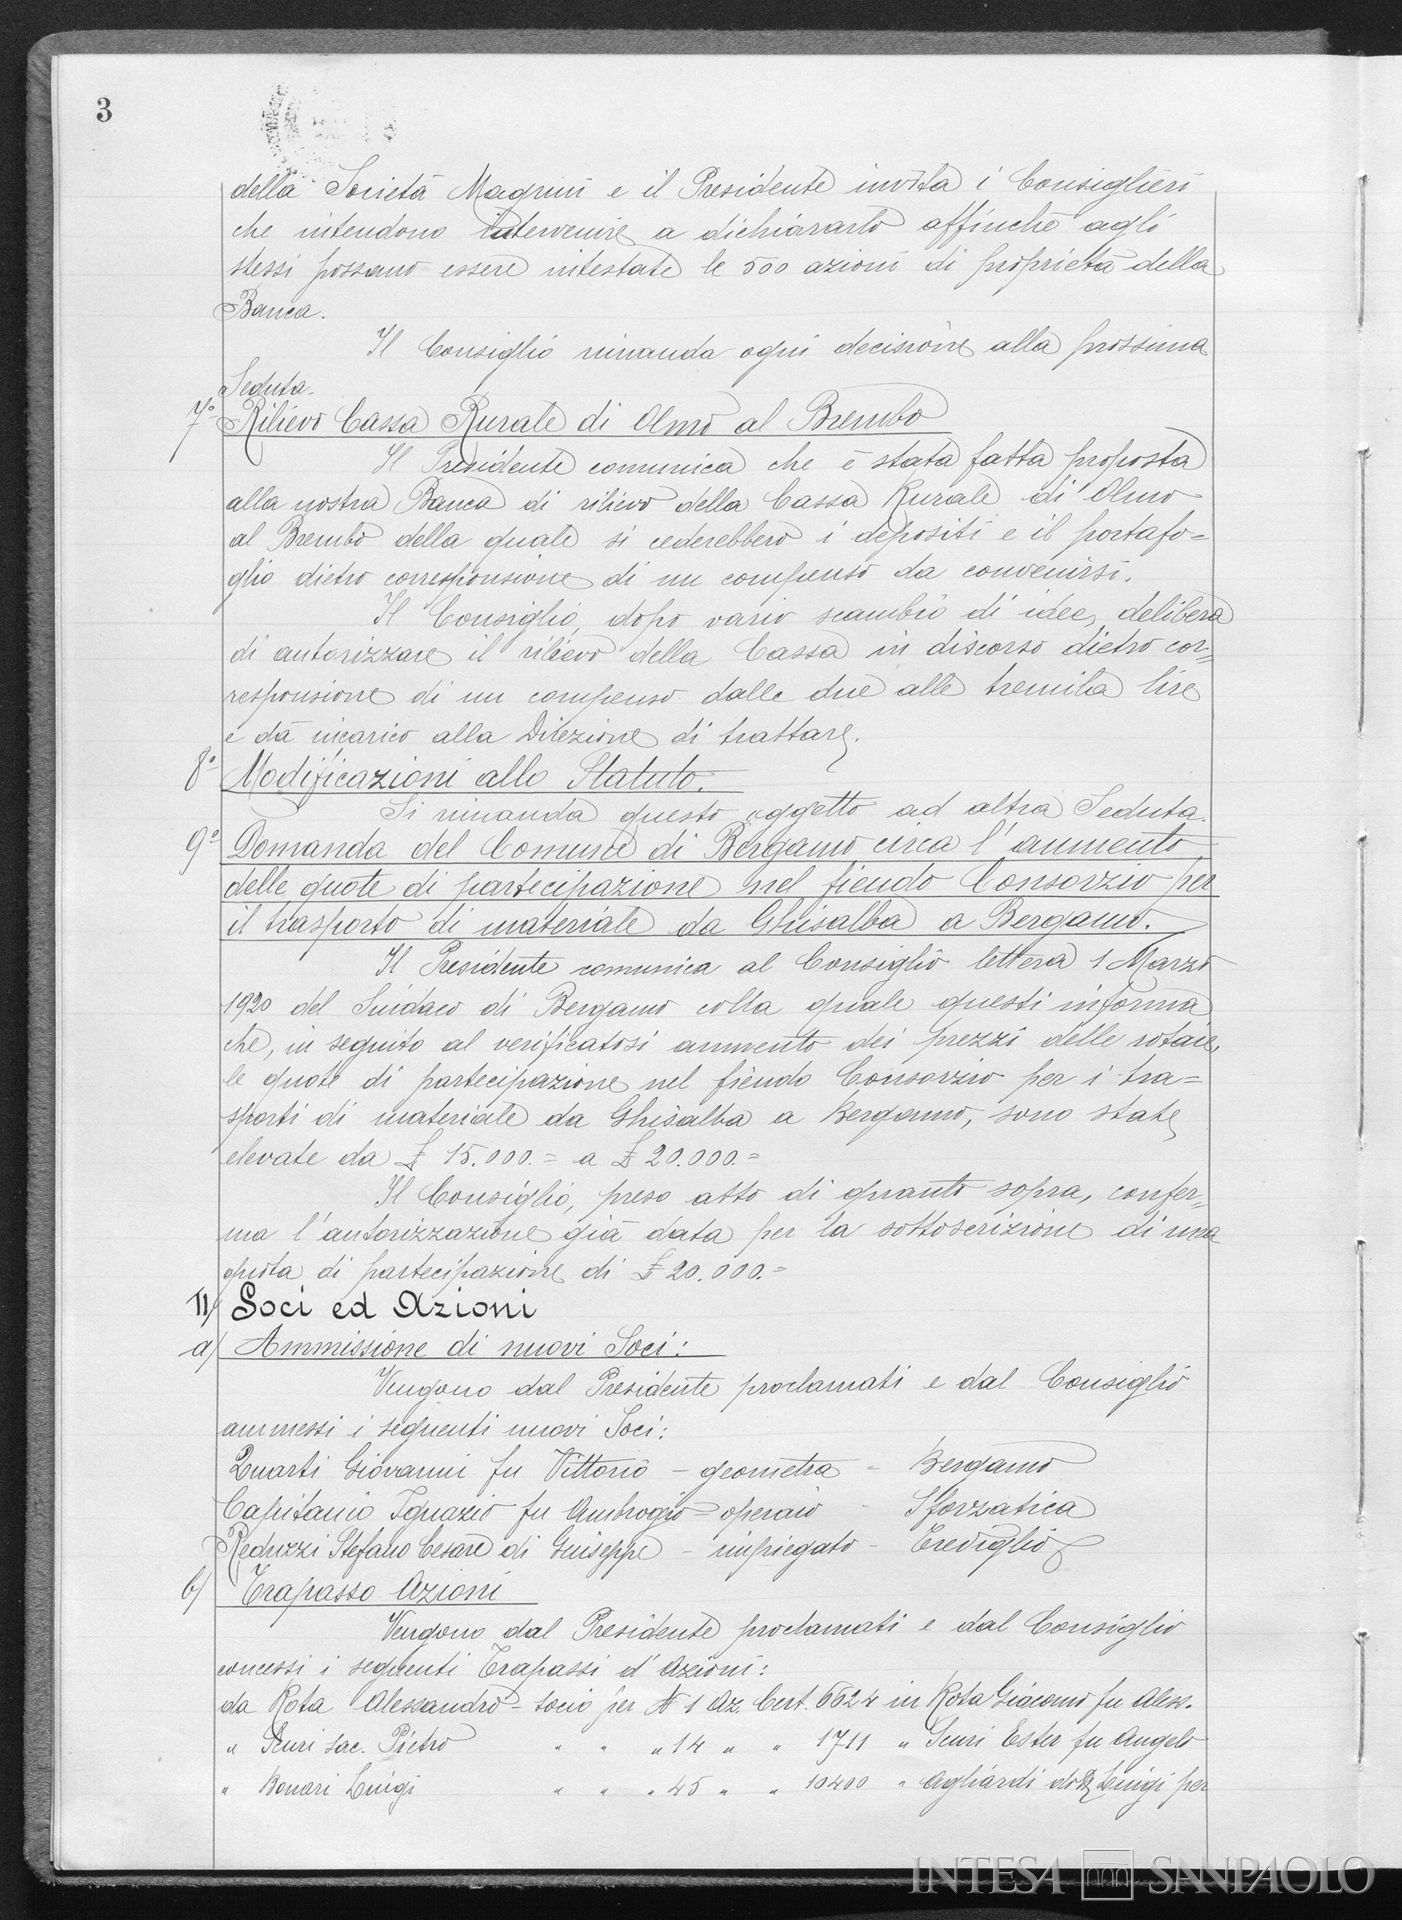 3
della Società Magrini e il Presidente invita i Consiglieri
che intendono intervenire a dichiararlo affinchè agli
stessi possano essere intestate le 500 azioni di proprietà della
Banca.
Il Consiglio rimanda ogni decisione alla prossima
Seduta.
7° Rilievo Cassa Rurale di Olmo al Brembo
Il Presidente comunica che è stata fatta proposta
alla nostra Banca di rilievo della Cassa Rurale di Olmo
al Brembo della quale si cederebbero i depositi e il portafo=
glio dietro corresponsione di un compenso da convenirsi.
Il Consiglio, dopo vario scambio di idee, delibera
di autorizzare il rilievo della Cassa in discorso dietro cor=
responsione di un compenso dalle due alle tremila lire
e dà incarico alla Direzione di trattare.
8° Modificazioni allo Statuto.
Si rimanda questo oggetto ad altra Seduta.
9° Domanda del Comune di Bergamo circa l'aumento
delle quote di partecipazione nel fiendo Consorzio per
il trasporto di materiale da Ghisalba a Bergamo.
Il Presidente comunica al Consiglio lettera 1 Marzo
1920 del Sindaco di Bergamo colla quale questi informa
che, in seguito al verificatosi aumento dei prezzi delle rotaie,
le quote di partecipazione nel fiendo Consorzio per i tra=
sporti di materiale da Ghisalba a Bergamo, sono state
elevate da £ 15.000.= a £ 20.000.=
Il Consiglio, preso atto di quanto sopra, confer=
ma l'autorizzazione già data per la sottoscrizione di una
quota di partecipazione di £ 20.000.=
II) Soci ed Azioni
a) Ammissione di nuovi Soci:
Vengono dal Presidente proclamati e dal Consiglio
ammessi i seguenti nuovi Soci:
Quarti Giovanni fu Vittorio - geometra - Bergamo
Capitanio Ignazio fu Ambrogio - operaio - Sforzatica
Reduzzi Stefano Cesare di Giuseppe - impiegato - Trediglio
b) Trapasso Azioni
Vengono dal Presidente proclamati e dal Consiglio
concessi i seguenti Trapassi d'Azioni:
da Rota Alessandro - socio per N 1 Az. Cert. 6624 in Rota Giacomo fu Aless.
" Scuri Sac. Pietro " " " 14 " " 1711 " Scuri Ester fu Angelo
" Bonari Luigi " " " 45 " " 10400 " Agliardi dott. Luigi per
INTESA SANPAOLO